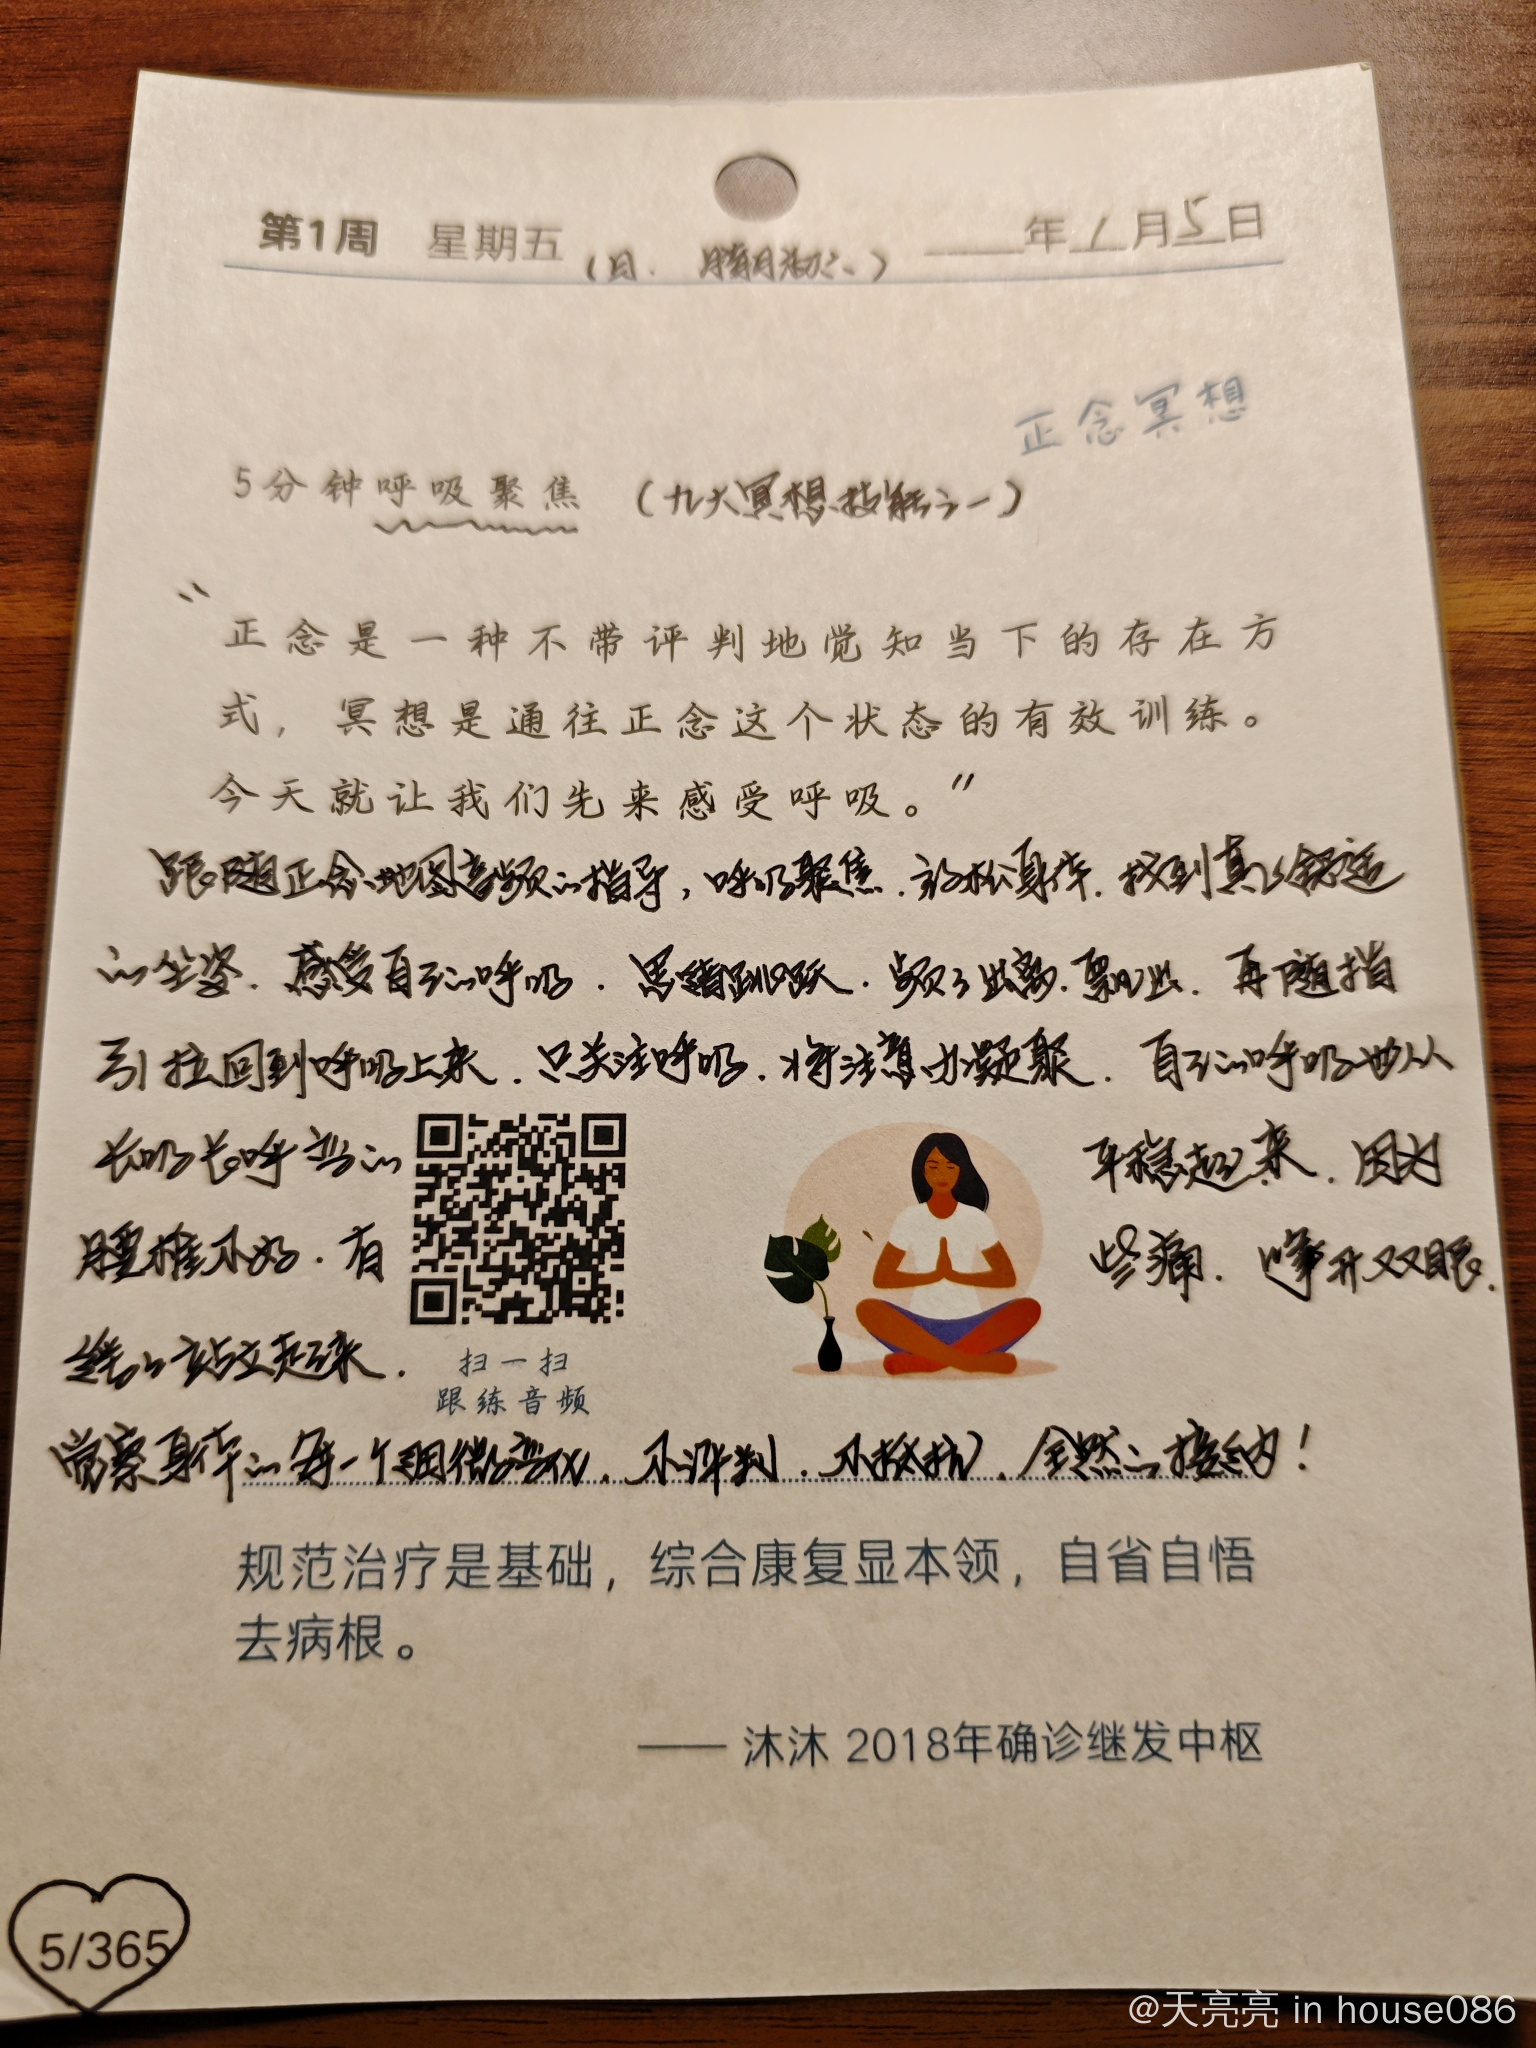 第1周 星期五 (日. 腊月初六) 年1月5日
正念冥想
5分钟呼吸聚焦 (九大冥想技能之一)
“正念是一种不带评判地觉知当下的存在方
式，冥想是通往正念这个状态的有效训练。
今天就让我们先来感受呼吸。”
跟随正念地图音频的指导，呼吸聚焦.放松身体.找到真的舒适
的坐姿.感受自己的呼吸.思绪跳跃.频了出离.飘出.再随指
引拉回到呼吸上来.只关注呼吸.将注意力凝聚.自己的呼吸也从
长吸长呼 当的 平稳起来.因为
腰椎不好.有 些痛.睁开双眼.
缓缓站立起来.
扫一扫
跟练音频
觉察身体的每一个细微变化.不评判.不抵抗.全然的接纳!
规范治疗是基础，综合康复显本领，自省自悟
去病根。
—— 沐沐 2018年确诊继发中枢
5/365
@天亮亮 in house086